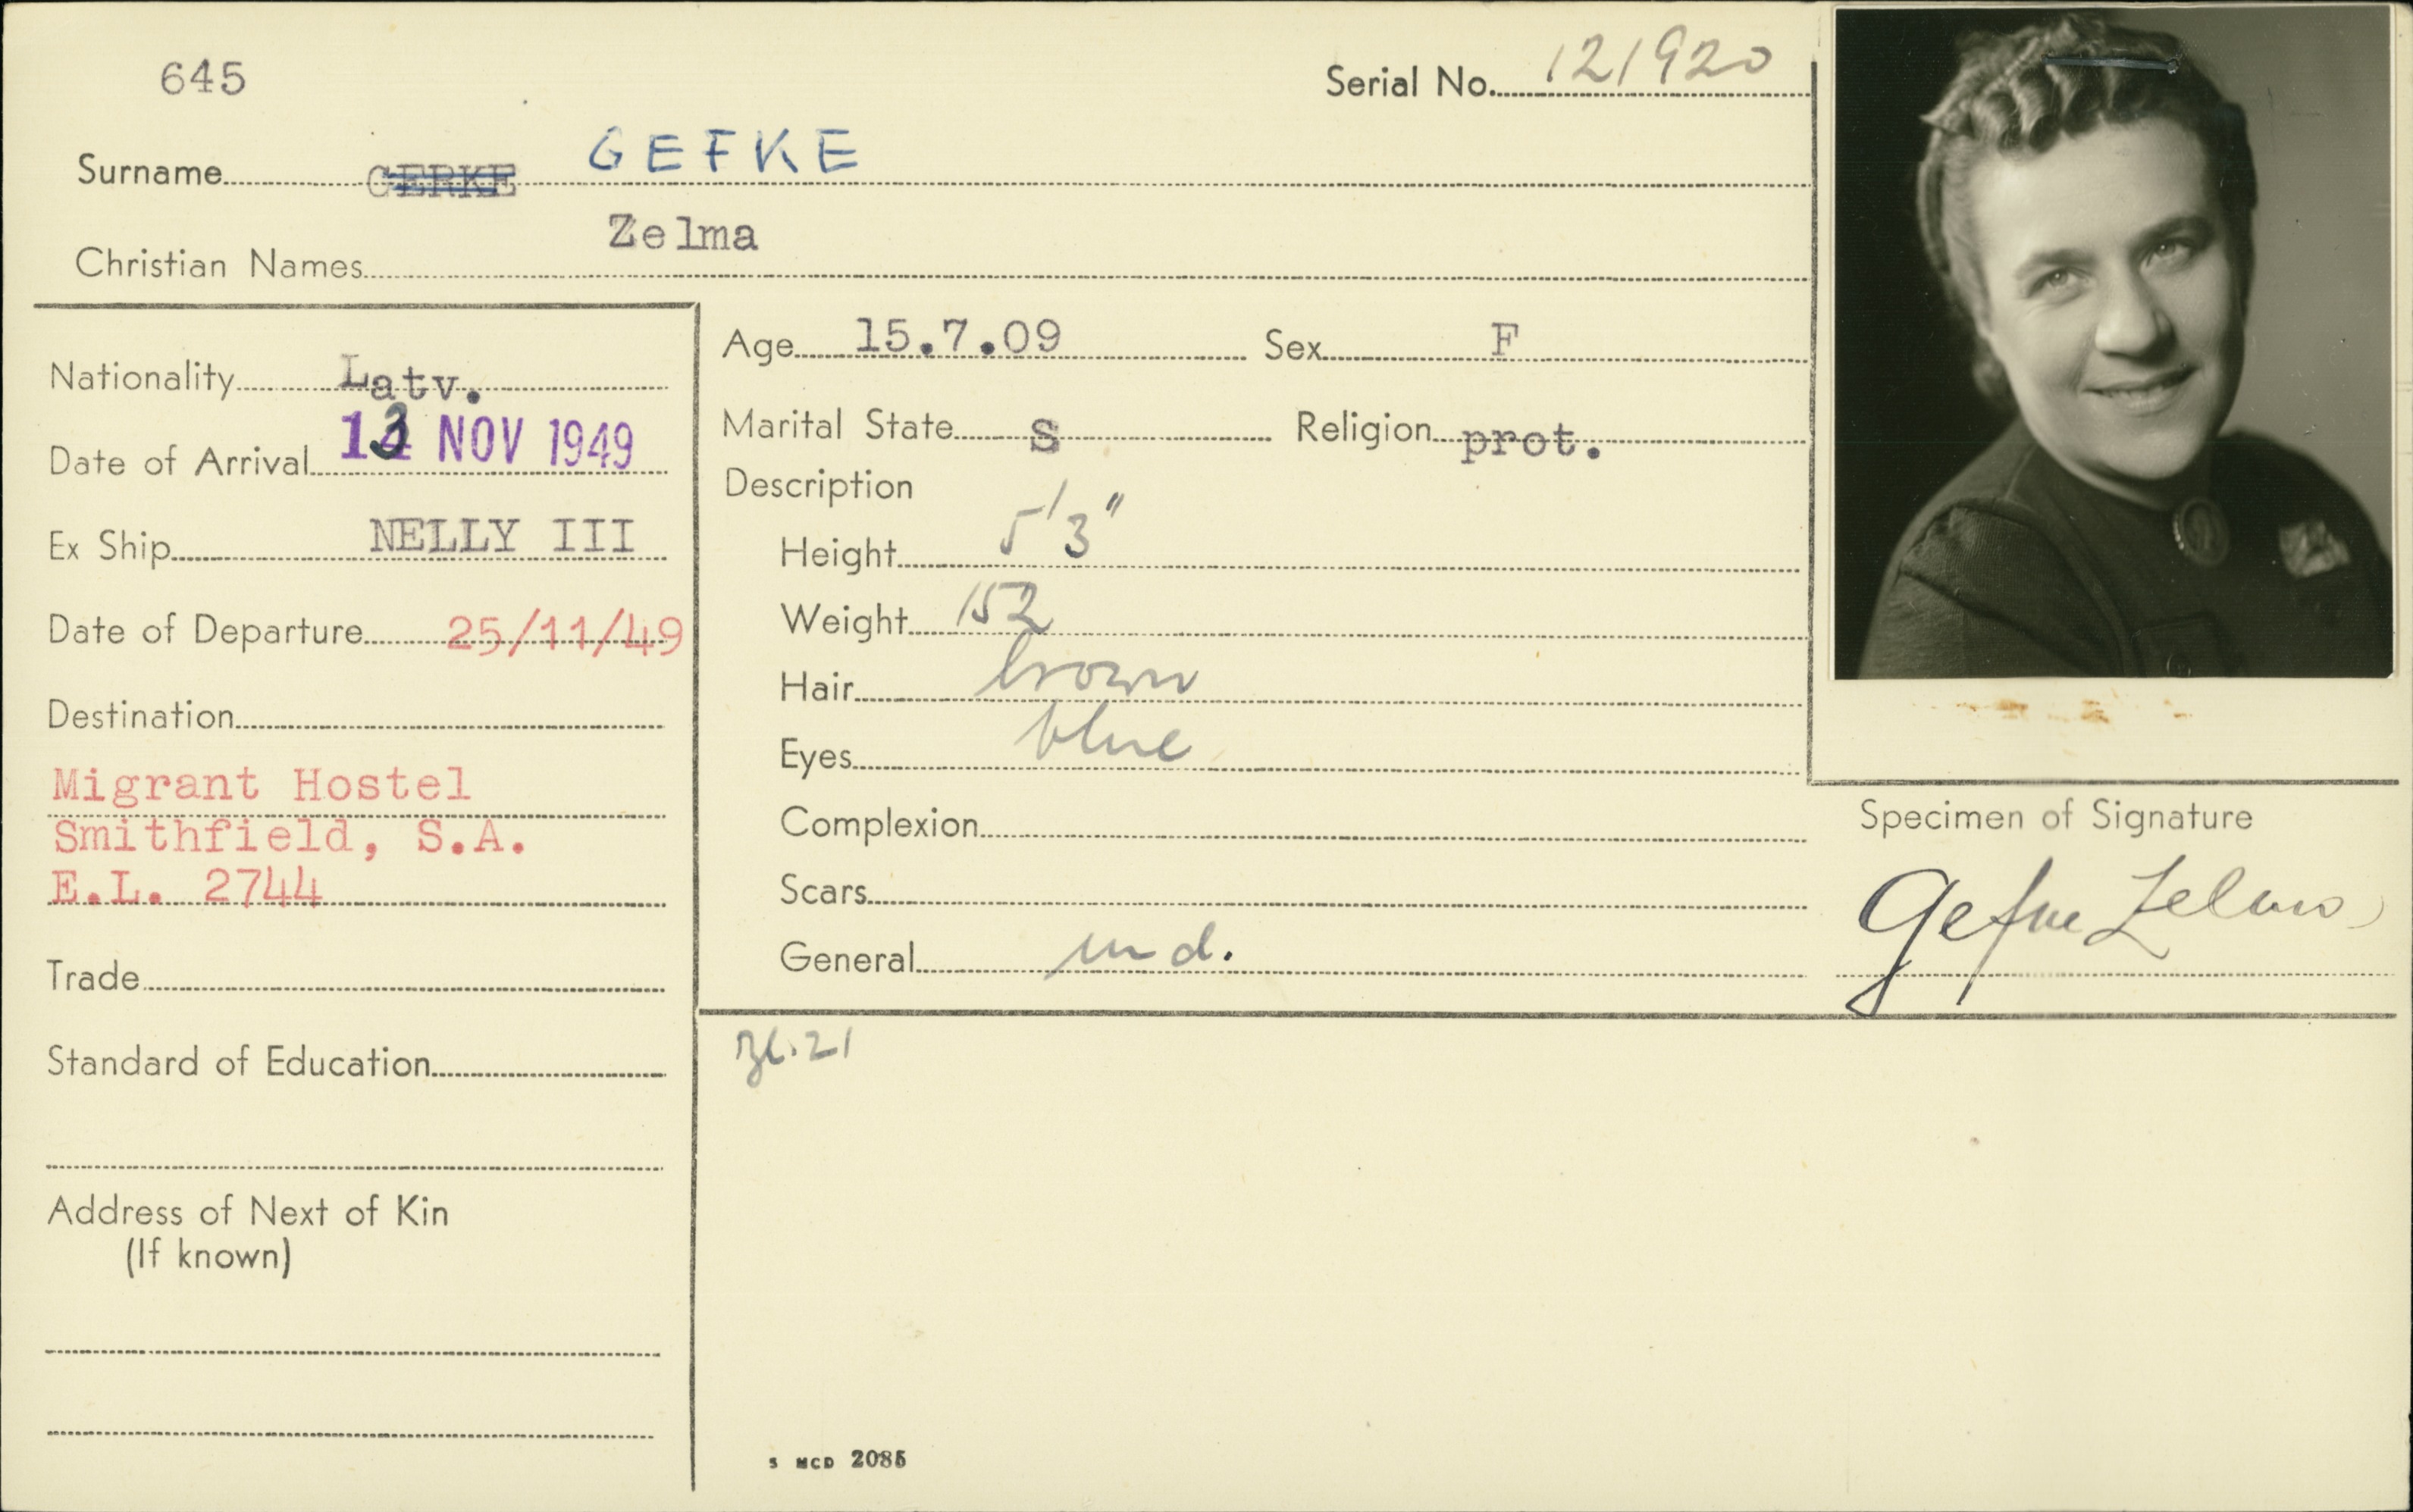 645
Serial No. 121920
Surname GERKE GEFKE
Christian Names Zelma
Nationality Latv.
Date of Arrival 13 NOV 1949
Ex Ship NELLY III
Date of Departure 25/11/49
Destination
Migrant Hostel
Smithfield, S.A.
E.L. 2744
Trade
Standard of Education
Address of Next of Kin
(If known)
Age 15.7.09 Sex F
Marital State S Religion prot.
Description
Height 5'3"
Weight 152
Hair brown
Eyes blue
Complexion
Scars
General
Specimen of Signature
Gefke Zelma
S MCD 2085